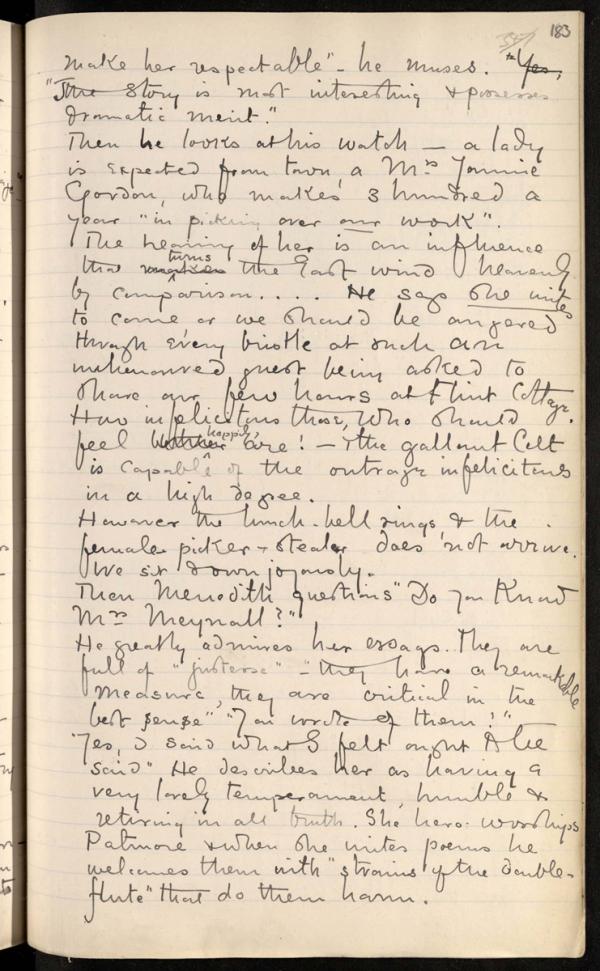 183
make her respectable" - he muses. "Yes,
"The story is most interesting & possesses
dramatic merit."
Then he looks at his watch — a lady
is expected from town, a Mrs
Gordon, who makes 3 hundred a
year "in picking over our work".
The hearing of her is an influence
that turns the East wind heavenly
by comparison.... He says she writes
to come or we should be angered
through every bristle at such an
unhonoured guest being asked to
share our few hours at Flint Cottage.
How infelicitous those, who should
feel happy, are! — The gallant Celt
is capable of the outrage infelicitous
in a high degree.
However the lunch-bell rings & the
female picker & stealer does not arrive.
We sit down joyously.
Then Meredith questions "Do you know
Mrs Meynell?"
He greatly admires her essays. They are
full of "justesse" - "they have a remarkable
measure, they are critical in the
best sense" "You wrote of them!"
Yes, I said what I felt ought to be
said" He describes her as having a
very lovely temperament, humble &
retiring in all truth. She hero-worships
Patmore & when she writes poems he
welcomes them with "strains of the double-
flute" that do them harm.